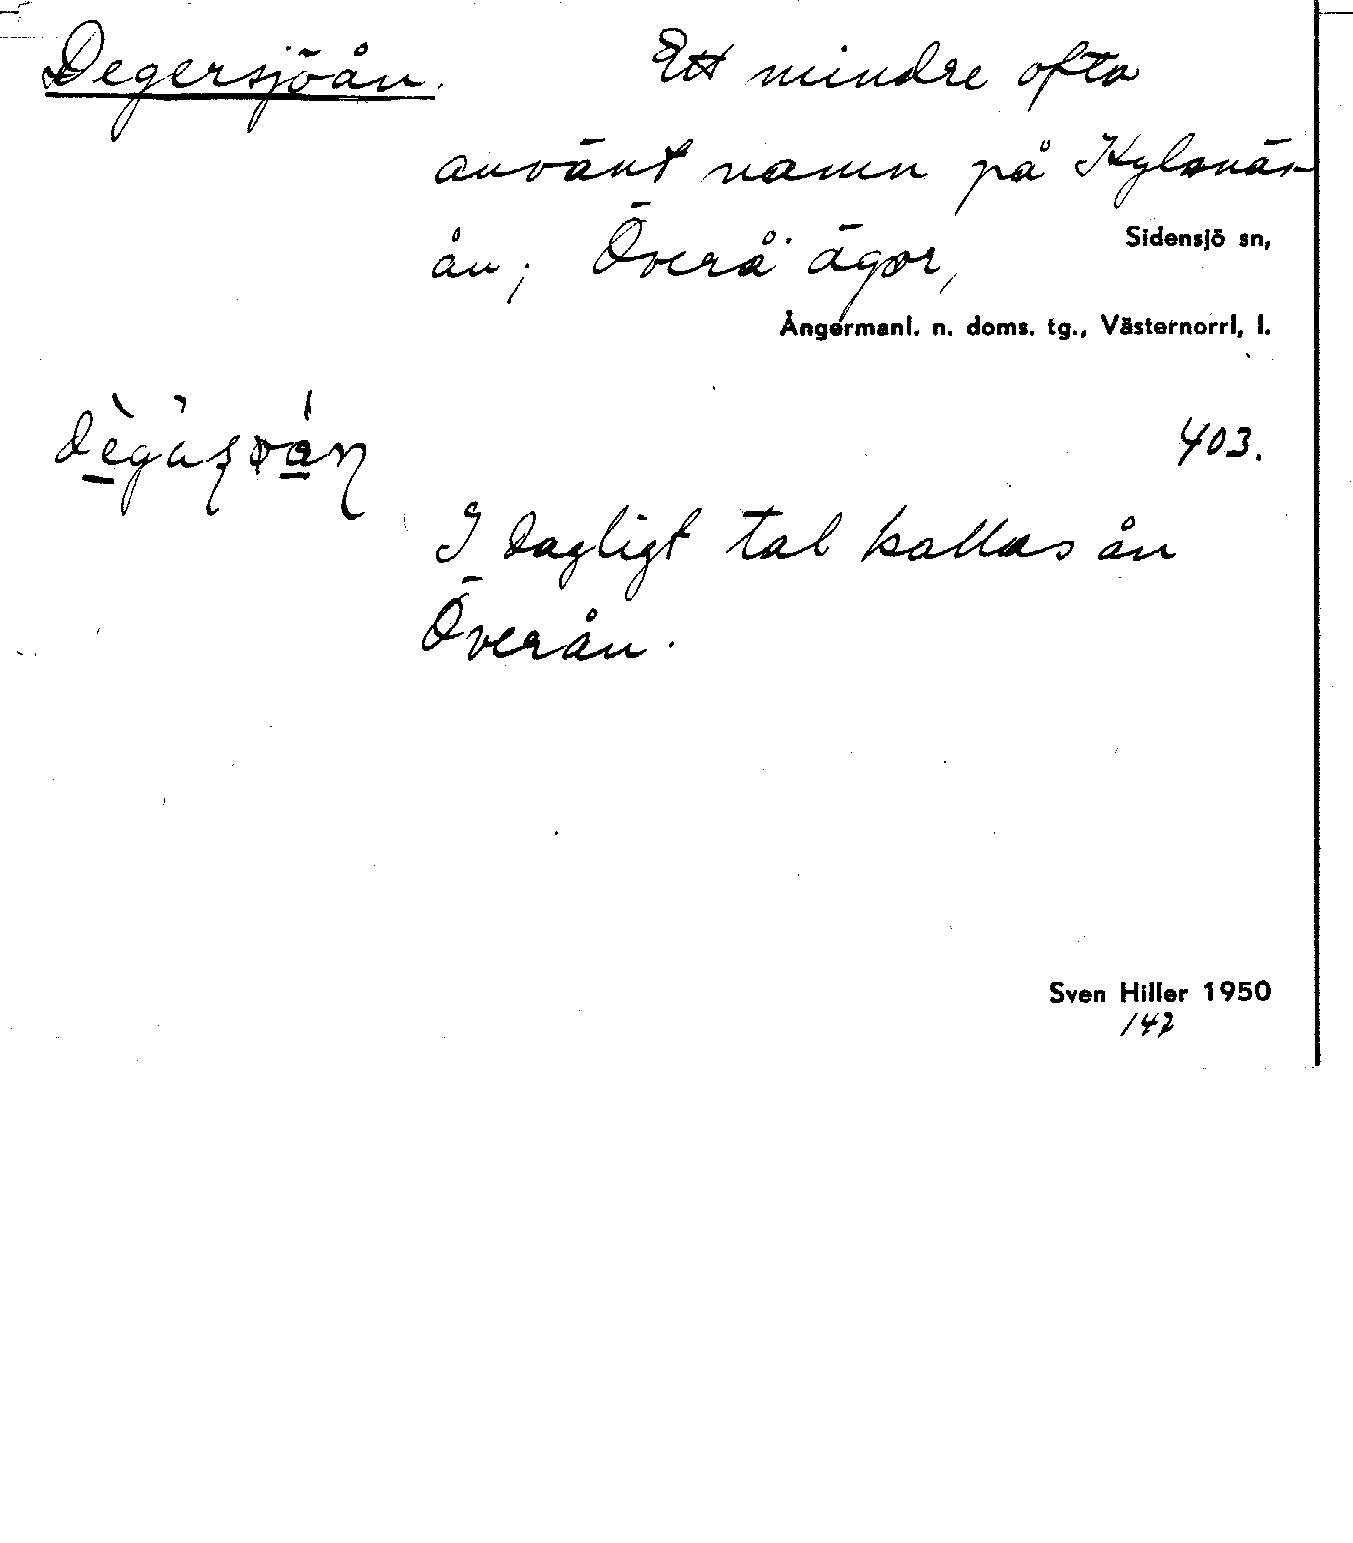 Degersjöån. Ett mindre ofta
använt namn på Kylsnäs-
ån; Överå ägor,
Sidensjö sn,
Ångermanl. n. doms. tg., Västernorrl. l.
403.
I dagligt tal kallas ån
Överån.
Sven Hiller 1950
142